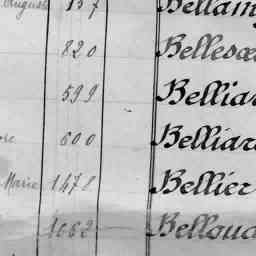 Auguste 137 Bellam
820 Belleso
599 Belliar
600 Belliar
Marie 1478 Bellier
1662 Belloua